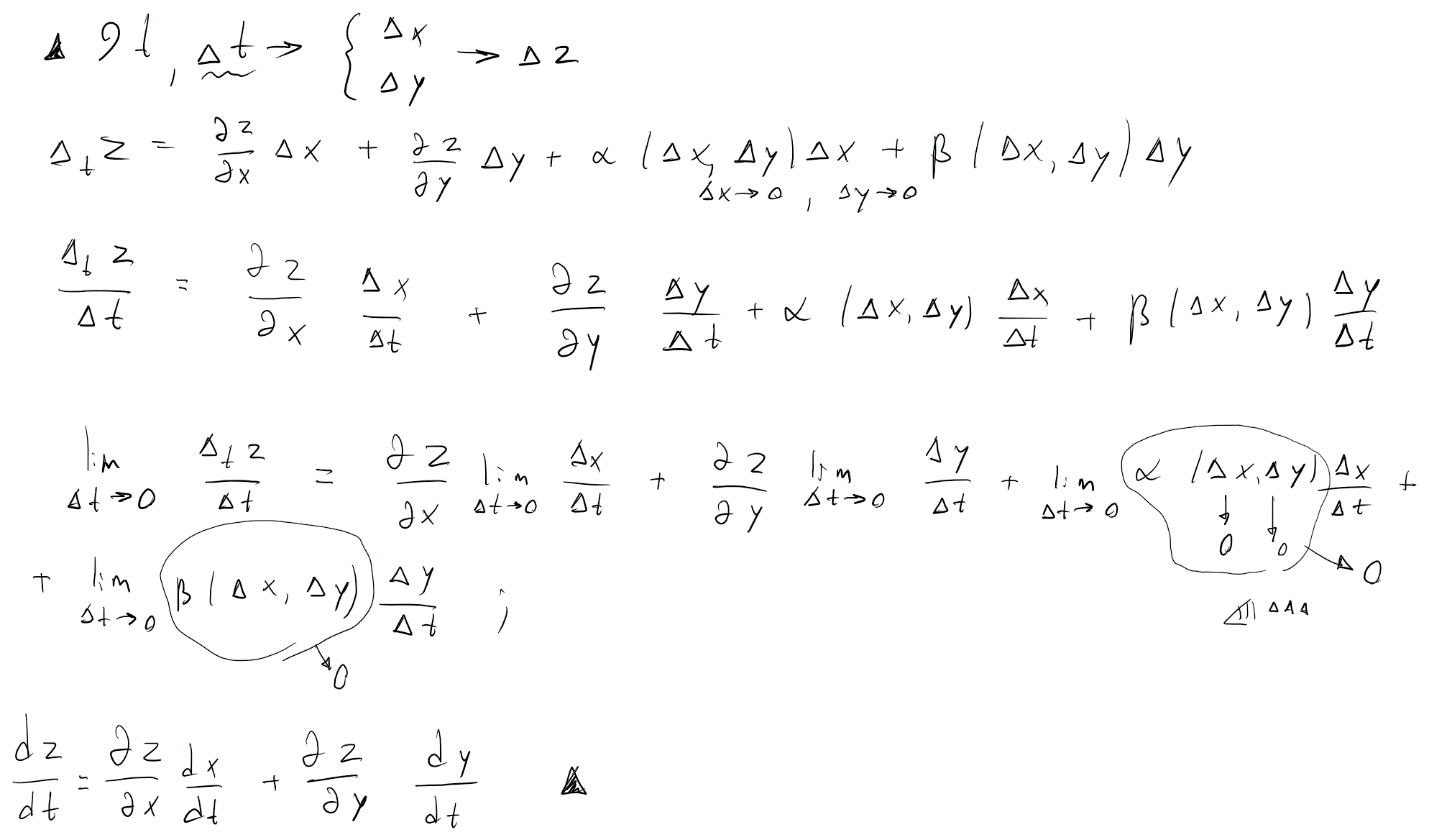 ▲ ∃ t, Δt → { Δx Δy → Δz
Δ_t z = ∂z/∂x Δx + ∂z/∂y Δy + α (Δx, Δy) Δx + β (Δx, Δy) Δy
Δx→0, Δy→0
Δ_t z/Δt = ∂z/∂x Δx/Δt + ∂z/∂y Δy/Δt + α (Δx, Δy) Δx/Δt + β (Δx, Δy) Δy/Δt
lim Δt→0 Δ_t z/Δt = ∂z/∂x lim Δt→0 Δx/Δt + ∂z/∂y lim Δt→0 Δy/Δt + lim Δt→0 α (Δx, Δy) Δx/Δt +
↓ 0 ↓ 0 → 0
+ lim Δt→0 β (Δx, Δy) Δy/Δt ;
→ 0
dz/dt = ∂z/∂x dx/dt + ∂z/∂y dy/dt ▲